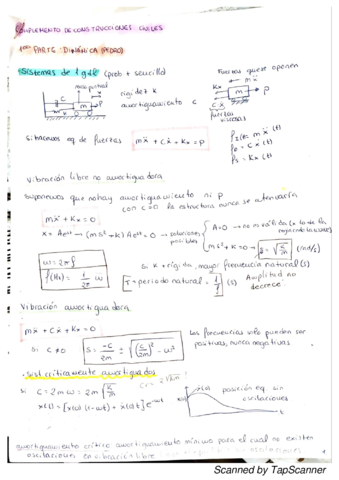 COMPLEMENTO DE CONSTRUCCIONES CIVILES
1ERA PARTE: DINÁMICA (PEDRO)
• Sistemas de 1 gdl (prob + sencillo)
Fuerzas que se oponen
masa puntual
rigidez k
amortiguamiento c
fuerzas
Situamos eq de fuerzas mẍ + cẋ + kx = p
fI(t) = mẍ(t)
fD = cẋ(t)
fS = kx(t)
Vibración libre no amortiguada
Suponemos que no hay amortiguamiento ni p
con c=0 la estructura nunca se atenuaría
mẍ + kx = 0
x = Ae^st → (ms² + k)Ae^st = 0 → soluciones posibles
A=0 → no es válida
ms² + k = 0
ω = 2πf
f(Hz) = 1/2π ω
Si k + rígida, mayor frecuencia natural (s)
T = periodo natural = 1/f (s) Amplitud no decrece
Vibración amortiguadora
mẍ + cẋ + kx = 0
Si c ≠ 0 s = -c/2m ± √((c/2m)² - ω²)
Las frecuencias solo pueden ser
positivas, nunca negativas
• Sist críticamente amortiguados
si c = 2mω = 2m√(k/m)
x(t) = [x(0)(1-ωt) + ẋ(0)t]e^-ωt
posición eq sin
oscilaciones
amortiguamiento crítico amortiguamiento mínimo para el cual no existen
oscilaciones en vibración libre
Scanned by TapScanner